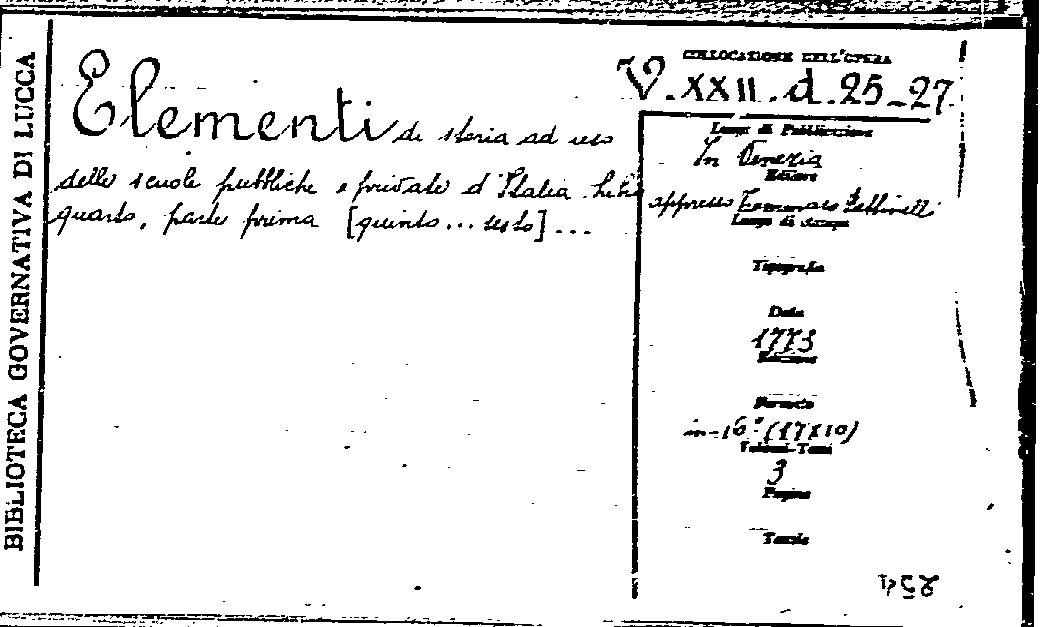 BIBLIOTECA GOVERNATIVA DI LUCCA
Elementi di storia ad uso
delle scuole pubbliche e private d'Italia
quarto, parte prima [quinto ... sesto] ...
COLLOCAZIONE DELL'OPERA
V. XXII. d. 25-27.
Luogo di Pubblicazione
In Venezia
Editore
appresso Tommaso Bettinelli
Luogo di stampa
Tipografia
Data
1773
Formato
in-16° (17X10)
Volumi-Tomi
3
Pagine
Tavole